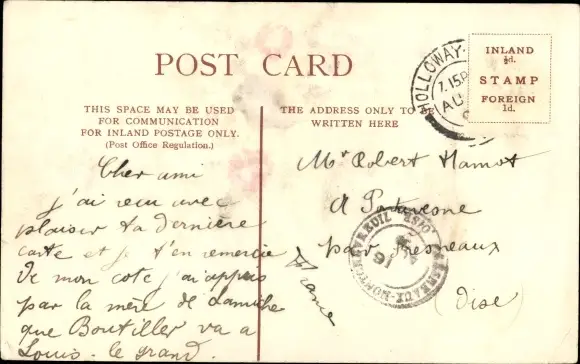 POST CARD
THIS SPACE MAY BE USED
FOR COMMUNICATION
FOR INLAND POSTAGE ONLY.
(Post Office Regulation.)
Cher ami
j'ai reçu avec
plaisir ta dernière
carte et je t'en remercie
De mon coté j'ai appris
par la mère de
que Boutiller va a
Louis-le grand.
THE ADDRESS ONLY TO BE
WRITTEN HERE
Mr Robert Hamot
A
par Fresneaux
(Oise)
France
HOLLOWAY
7.15P
AU
INLAND
½d.
STAMP
FOREIGN
1d.
OISE
16